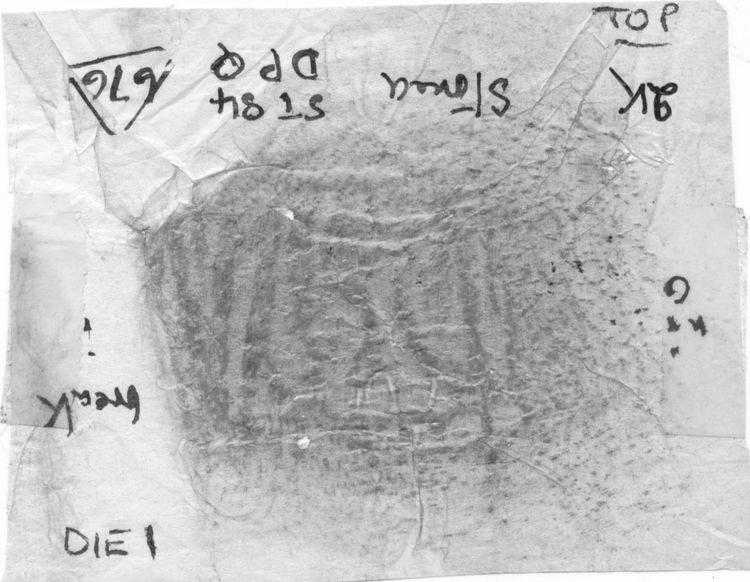 TOP
2K
ST 84
DPQ
676
G
break
DIE 1